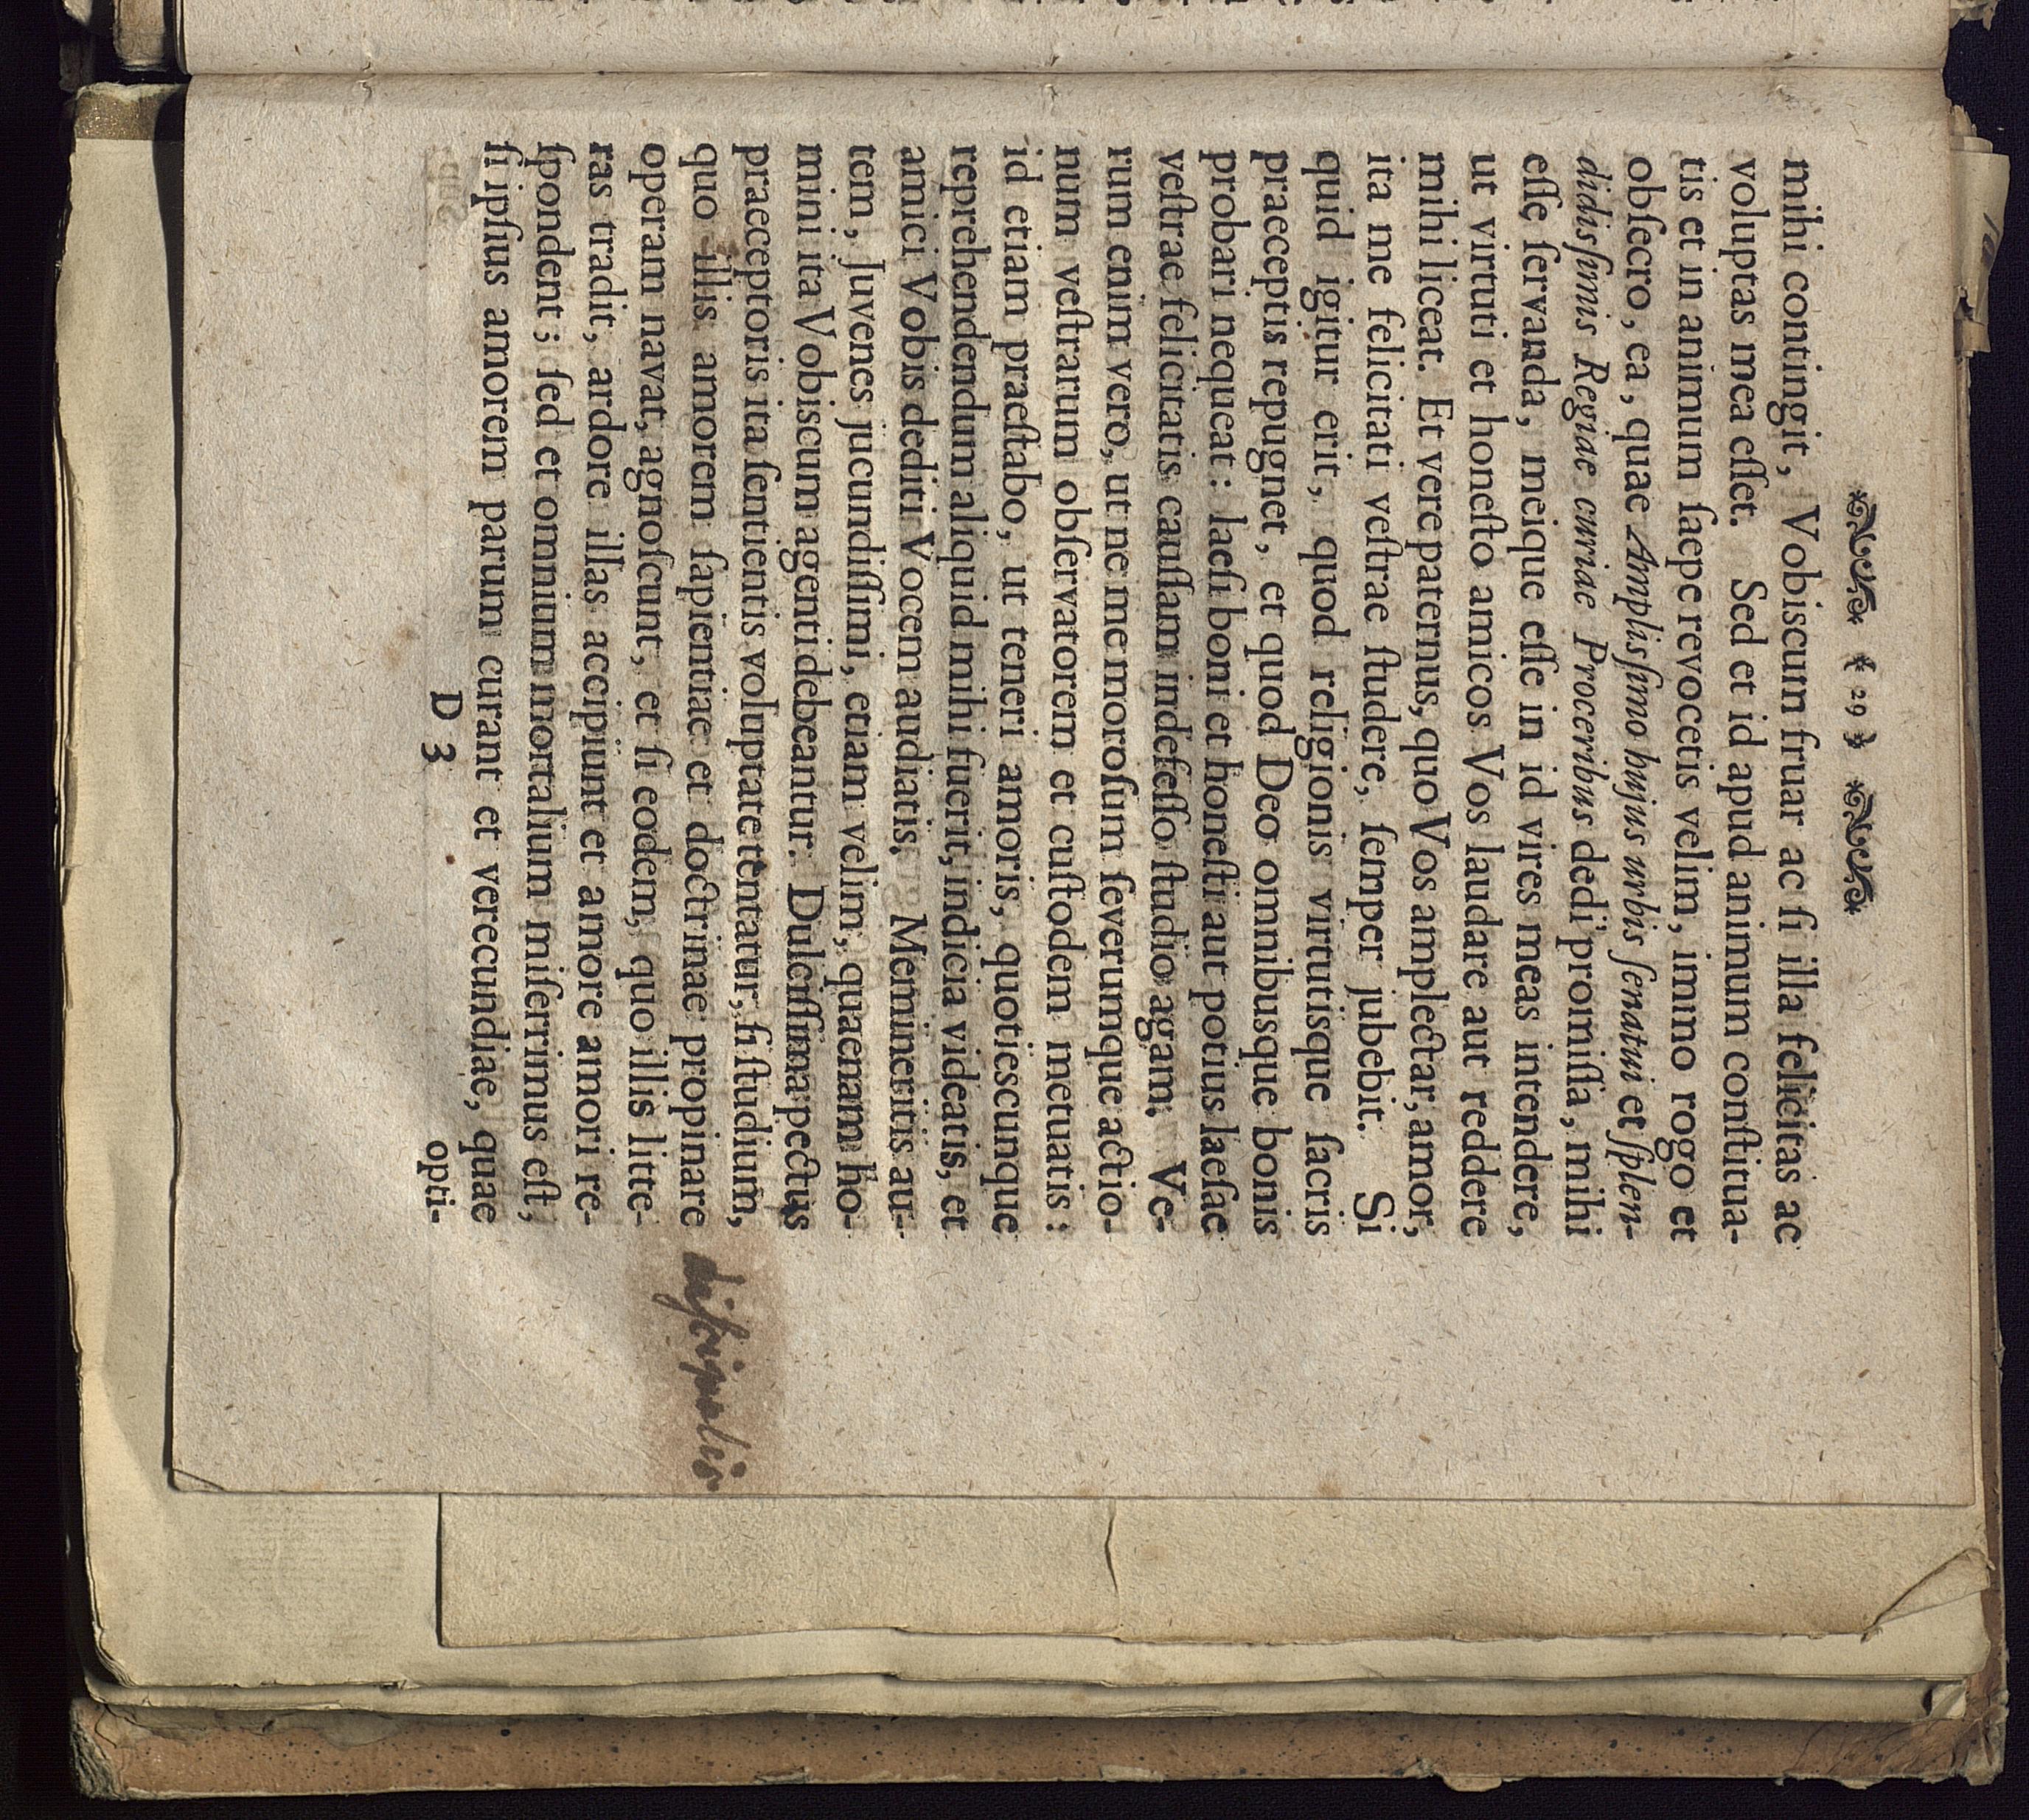 ( 29 )
mihi contingit, Vobiscum fruar ac ſi illa felicitas ac
voluptas mea eſſet. Sed et id apud animum conſtitua-
tis et in animum ſaepe revocetis velim, immo rogo et
obſecro, ea, quae Amplisſimo hujus urbis ſenatui et ſplen-
didisſimis Regiae curiae Proceribus dedi promiſſa, mihi
eſſe ſervanda, meique eſſe in id vires meas intendere,
ut virtuti et honeſto amicos Vos laudare aut reddere
mihi liceat. Et vere paternus, quo Vos amplectar, amor,
ita me felicitati veſtrae ſtudere, ſemper jubebit. Si
quid igitur erit, quod religionis virtutisque ſacris
praeceptis repugnet, et quod Deo omnibusque bonis
probari nequeat: laeſi boni et honeſti aut potius laeſae
veſtrae felicitatis cauſſam indefeſſo ſtudio agam. Ve-
rum enim vero, ut ne me moroſum ſeverumque actio-
num veſtrarum obſervatorem et cuſtodem metuatis:
id etiam praeſtabo, ut teneri amoris, quotiescunque
reprehendendum aliquid mihi fuerit, indicia videatis, et
amici Vobis dediti Vocem audiatis. Memineritis au-
tem, Juvenes jucundiſſimi, etiam velim, quaenam ho-
mini ita Vobiscum agenti debeantur. Dulciſſima pectus
praeceptoris ita ſentientis voluptate tentatur, ſi ſtudium,
quo illis amorem ſapientiae et doctrinae propinare diſcipulis
operam navat, agnoſcunt, et ſi eodem, quo illis litte-
ras tradit, ardore illas accipiunt et amore amori re-
ſpondent; ſed et omnium mortalium miſerrimus eſt,
ſi ipſius amorem parum curant et verecundiae, quae
D 3
opti-